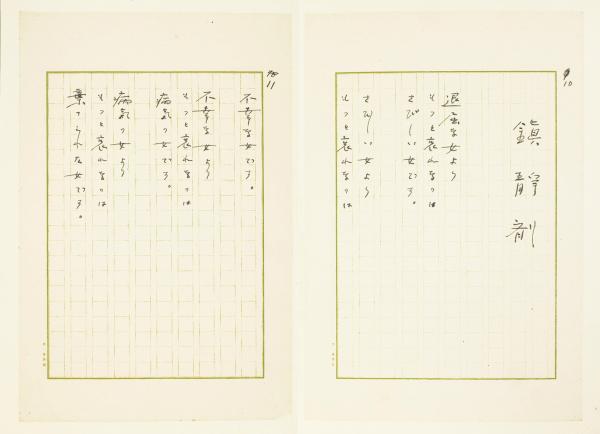 10
鎭靜劑
退屈な女より
もつと哀れなのは
さびしい女です。
さびしい女より
もつと哀れなのは
11
不幸な女です。
不幸な女より
もつと哀れなのは
病気の女です。
病気の女より
もつと哀れなのは
棄てられた女です。